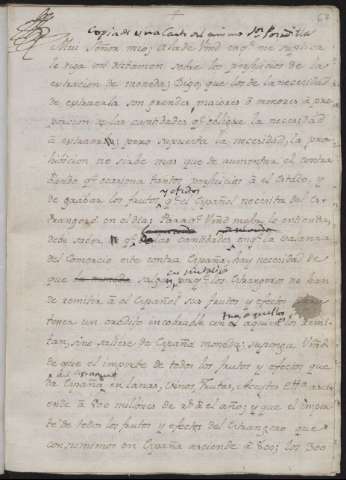 Copia de una Carta del mismo Sr.
Muy Señor mio; A la de Vmd en qe. me suplica
le diga mi dictamen sobre los perjuicios de la
extraccion de moneda; Digo, que los de la necesidad
de extraerla son grandes, maiores ò menores à pro-
porcion de las cantidades qe. obligue la necesidad
à extraer; pero supuesta la necesidad, la pro-
hibicion no sirbe mas que de aumentar el contra
bando qe. ocasiona tantos perjuicios à el Estado, y
y efectos
de grabar los frutos qe. el Español necesita del Es-
trangero en el dia; Para qe. Vmd mejor lo entienda,
debe saber qe. las cantidades en qe. la valanza
del Comercio este contra España, hay necesidad de
que salgan, porqe. los Estrangeros no han
de remitir à el Español sus frutos y efectos
tener un credito incobrable con aquellos
tan, sino saliere de España moneda; suponga Vmd
de que el importe de todos los frutos y efectos que
da España en lanas, vinos, frutas, Aceytes etta. ascien-
de à 500 millones de rs. à el año; y que el impor-
te de todos los frutos y efectos del Estrangero que
consumimos en España asciende à 800; los 300